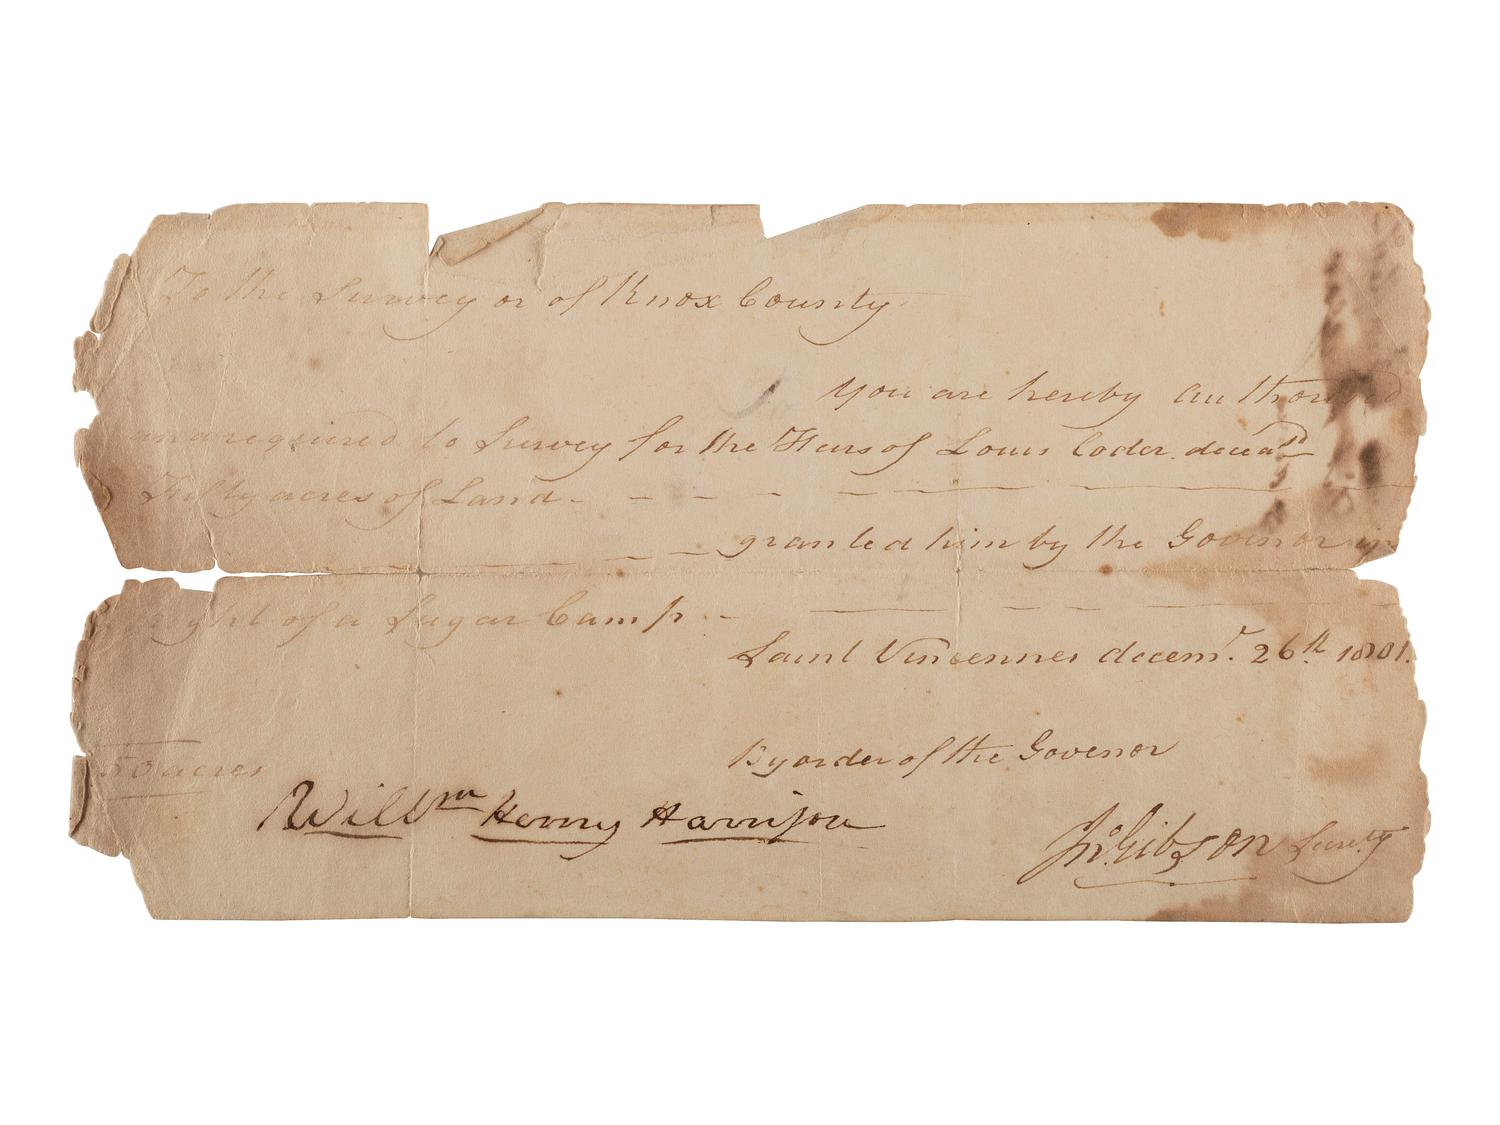 To the Surveyor of Knox County
You are hereby Authorized
and required to Survey for the Heirs of Louis Coder deceasd
Fifty acres of Land
granted him by the Govenor in
right of a Sugar Camp
Saint Vincennes decemr. 26th 1801.
By order of the Govenor
50 acres
Willm Henry Harrison
Jno. Gibson Secrety